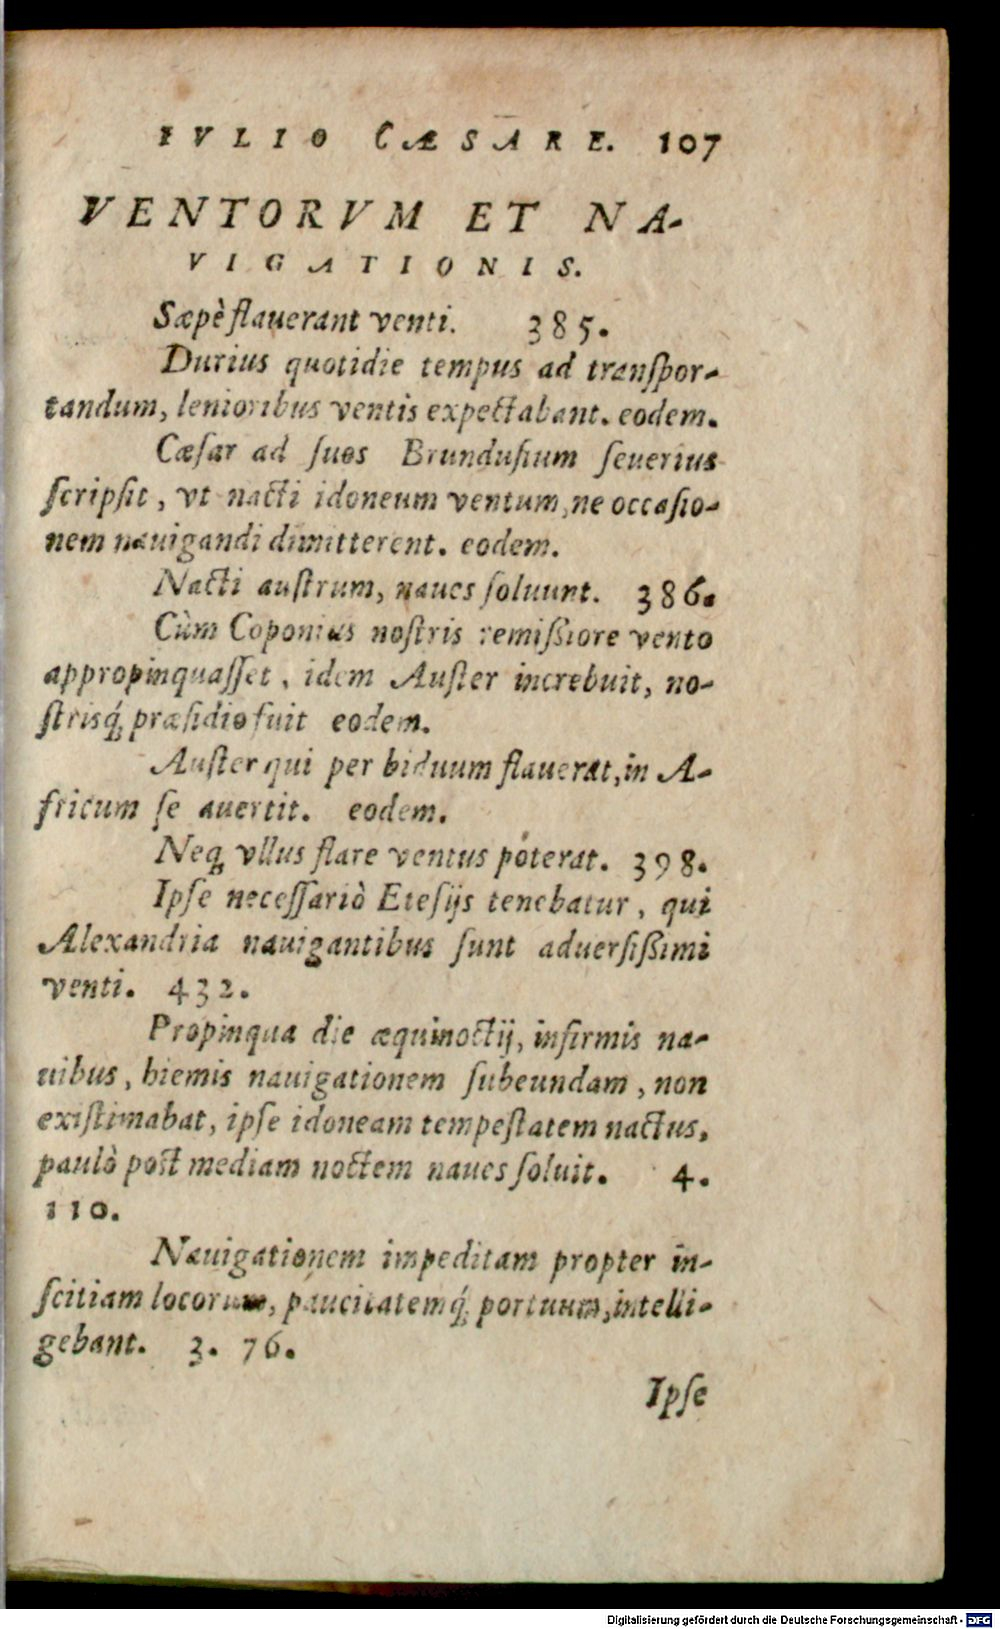 IVLIO CÆSARE. 107
VENTORVM ET NA-
VIGATIONIS.
Sæpè flauerant venti. 385.
Durius quotidie tempus ad tranſpor-
tandum, lenioribus ventis expectabant. eodem.
Cæſar ad ſuos Brunduſium ſeuerius
ſcripſit, vt nacti idoneum ventum, ne occaſio-
nem nauigandi dimitterent. eodem.
Nacti auſtrum, naues ſoluunt. 386.
Cùm Coponius noſtris remiſsiore vento
appropinquaſſet, idem Auſter increbuit, no-
ſtrisq́; præſidio fuit eodem.
Auſter qui per biduum flauerat, in A-
fricum ſe auertit. eodem.
Neq; vllus flare ventus poterat. 398.
Ipſe neceſſariò Eteſijs tenebatur, qui
Alexandria nauigantibus ſunt aduerſiſsimi
venti. 432.
Propinqua die æquinoctij, infirmis na-
uibus, hiemis nauigationem ſubeundam, non
exiſtimabat, ipſe idoneam tempeſtatem nactus,
paulò poſt mediam noctem naues ſoluit. 4.
110.
Nauigationem impeditam propter in-
ſcitiam locorum, paucitatemq́; portuum, intelli-
gebant. 3. 76.
Ipſe
Digitalisierung gefördert durch die Deutsche Forschungsgemeinschaft - DFG